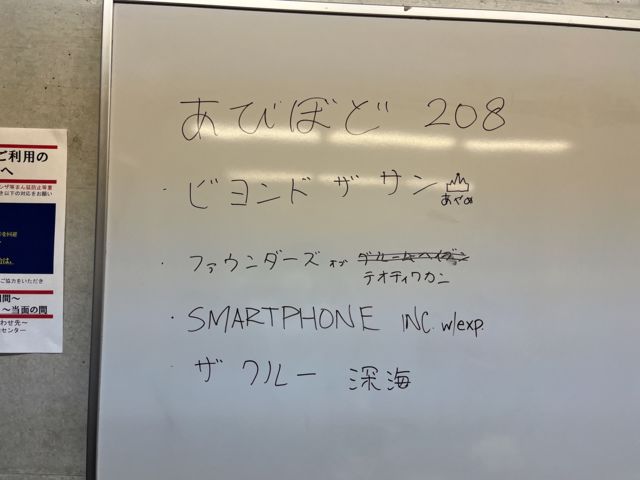 ご利用の
へ
ご協力をいただき
期間〜
〜当面の間
わせ先〜
センター
あびぼど 208
・ビヨンド ザ サン あやめ
・ファウンダーズ オブ テオティワカン
・SMARTPHONE INC. w/exp.
・ザ クルー 深海